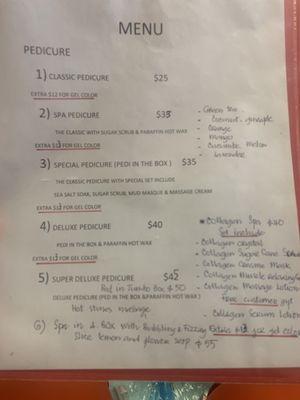 MENU
PEDICURE
1) CLASSIC PEDICURE $25
EXTRA $12 FOR GEL COLOR
2) SPA PEDICURE $35
THE CLASSIC WITH SUGAR SCRUB & PARAFFIN HOT WAX
EXTRA $12 FOR GEL COLOR
- Green tea
- Coconut - pineapple
- Orange
- Mango
- Cucumber Melon
- Lavender
3) SPECIAL PEDICURE (PEDI IN THE BOX ) $35
THE CLASSIC PEDICURE WITH SPECIAL SET INCLUDE
SEA SALT SOAK, SUGAR SCRUB, MUD MASQUE & MASSAGE CREAM
EXTRA $12 FOR GEL COLOR
4) DELUXE PEDICURE $40
PEDI IN THE BOX & PARAFFIN HOT WAX
EXTRA $12 FOR GEL COLOR
* Collagen Spa $40
Set include
- Collagen crystal
- Collagen Sugar Cane
- Collagen Mask
- Collagen Muscle Relaxing
- Collagen Massage Lotion
Free customer gift
- Collagen Serum Lotion
5) SUPER DELUXE PEDICURE $45
Pedi in Jumbo Box $50
DELUXE PEDICURE (PEDI IN THE BOX &PARAFFIN HOT WAX)
Hot stones massage
6) Spa in A Box with Bubbling & Fizzing Extra $12 for gel color
Slice lemon and flower soap $55